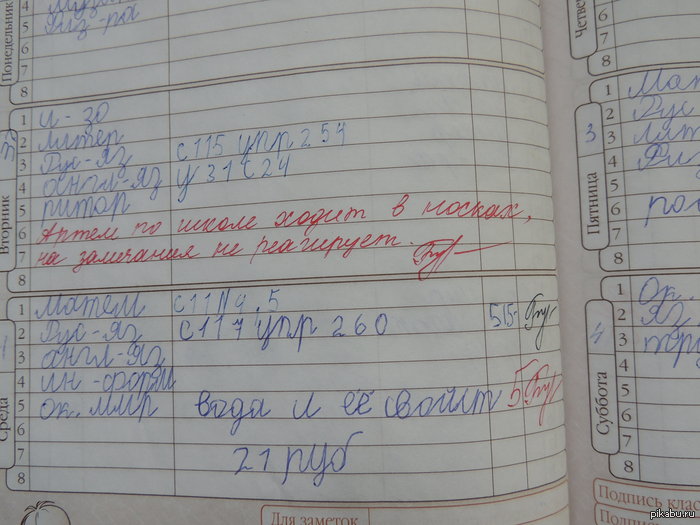 Понедельник
4 Музы
5 Физ-ра
6
7
8
Вторник
1 И-зо
2 литер
3 Рус-яз с115 упр 254
4 англ-яз у 31 с 24
5 ритор
6 Артем по школе ходит в носках,
7 на замечания не реагирует.
8
Среда
1 матем с 11 №4,5
2 Рус-яз с 117 упр 260 5 15-
3 англ-яз
4 ин-форм
5 ок. мир вода и её свойст 5
6
7 21 руб
8
Четве
8
Пятница 3
1 Мат
2 Рус
3 лит
4 Физ
5
6
7
8
Суббота 4
1 Ок.
2 Яз
3
4
5
6
7
8
Подпись клас
Для заметок
pikabu.ru